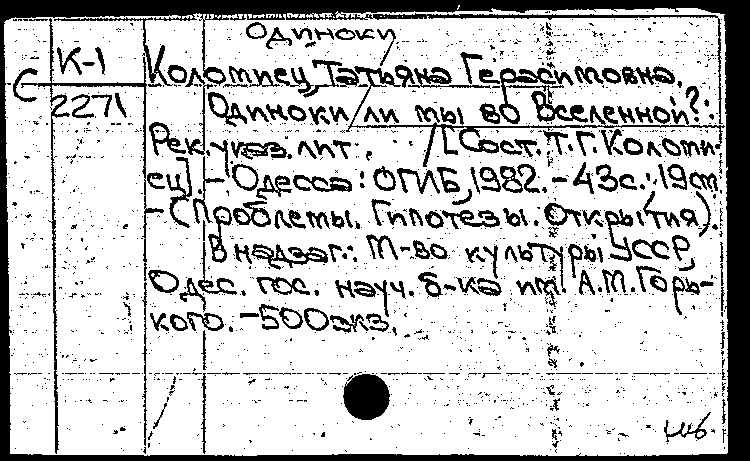 Одиноки
К-1
Коломиец, Татьяна Герасимовна.
С
2271
Одиноки ли мы во Вселенной?:
Рек. указ. лит. / [Сост. Т.Г. Коломи-
ец]. - Одесса: ОГНБ, 1982. - 43с.; 19см
- (Проблемы. Гипотезы. Открытия).
В надзаг.: М-во культуры УССР,
Одес. гос. науч. б-ка им. А.М. Горь-
кого. - 500экз.